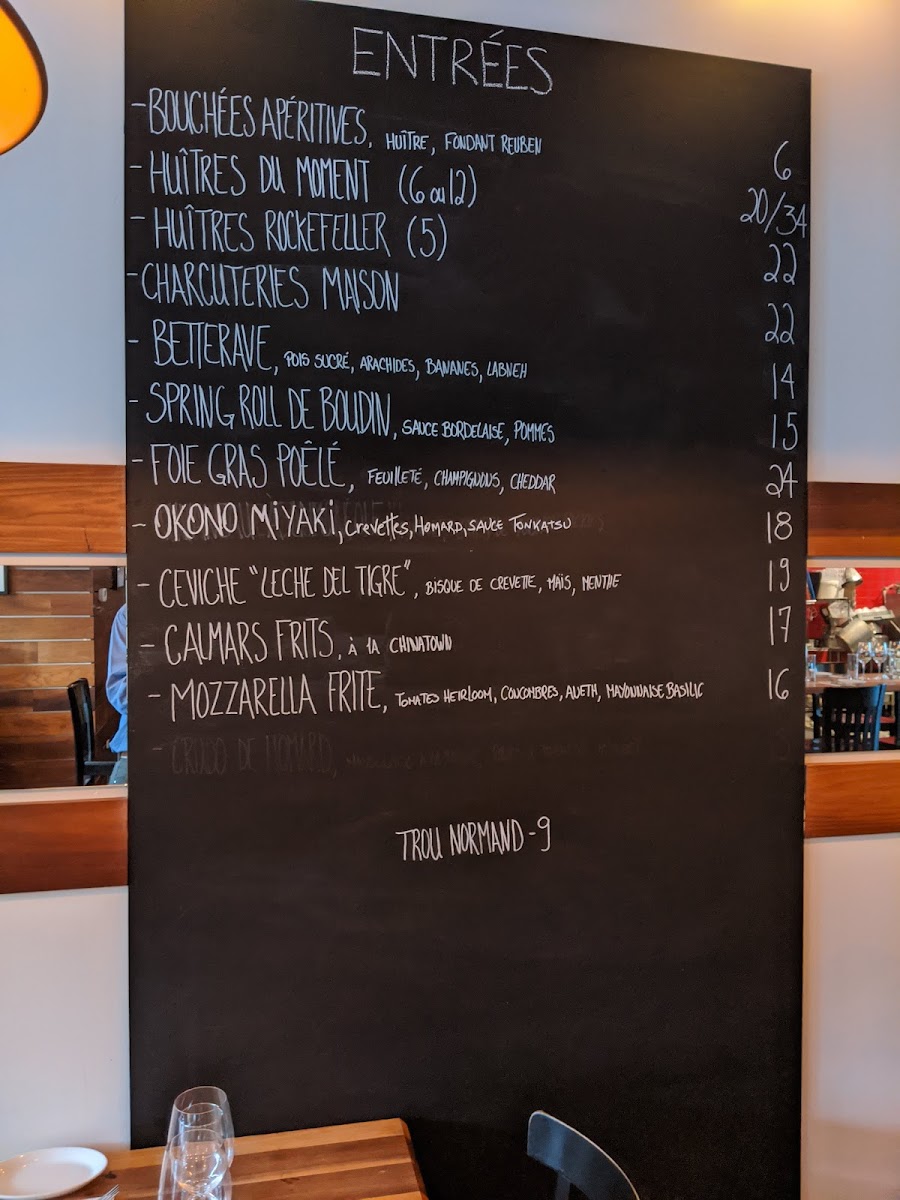 ENTRÉES
- BOUCHÉES APÉRITIVES, HUÎTRE, FONDANT REUBEN 6
- HUÎTRES DU MOMENT (6 ou 12) 20/34
- HUÎTRES ROCKEFELLER (5) 22
- CHARCUTERIES MAISON 22
- BETTERAVE, POIS SUCRÉ, ARACHIDES, BANANES, LABNEH 14
- SPRING ROLL DE BOUDIN, SAUCE BORDELAISE, POMMES 15
- FOIE GRAS POÊLÉ, FEUILLETÉ, CHAMPIGNONS, CHEDDAR 24
- OKONO MIYAKI, Crevettes, HOMARD, SAUCE TONKATSU 18
- CEVICHE "LECHE DEL TIGRE", BISQUE DE CREVETTE, MAÏS, MENTHE 19
- CALMARS FRITS, À LA CHINATOWN 17
- MOZZARELLA FRITE, TOMATES HEIRLOOM, CONCOMBRES, ANETH, MAYONNAISE BASILIC 16
- CRUDO DE HOMARD,
TROU NORMAND - 9